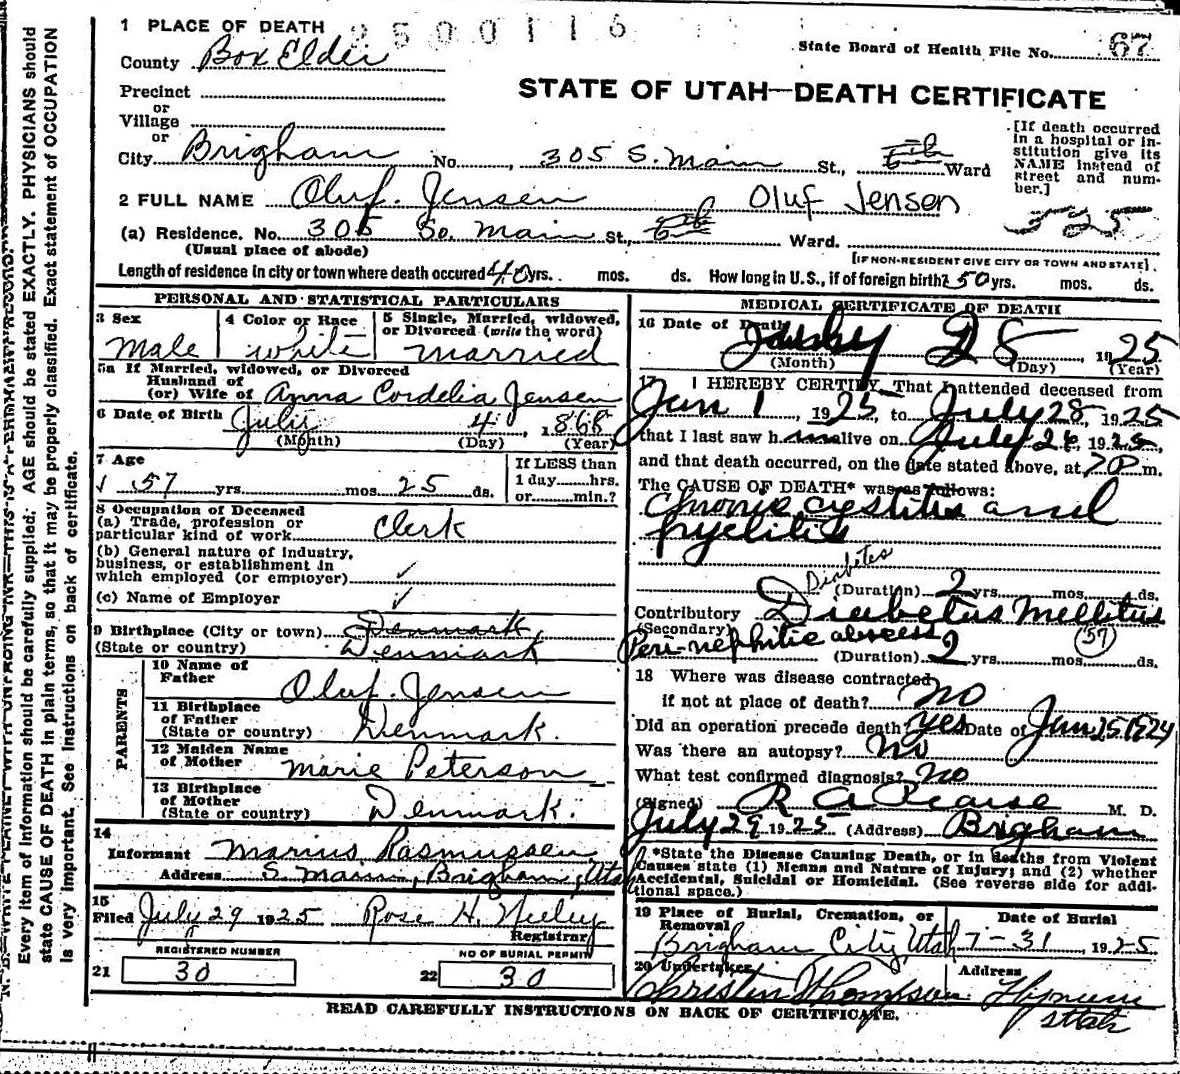 1 PLACE OF DEATH 2500116
State Board of Health File No. 67
County Box Elder
STATE OF UTAH—DEATH CERTIFICATE
Precinct
or
Village
or
City Brigham No. 305 S. Main St., Ward
[If death occurred in a hospital or institution give its NAME instead of street and number.]
2 FULL NAME Oluf. Jensen Oluf Jensen
525
(a) Residence. No. 305 So. Main St., Ward.
(Usual place of abode)
[IF NON-RESIDENT GIVE CITY OR TOWN AND STATE]
Length of residence in city or town where death occured 40 yrs. mos. ds. How long in U.S., if of foreign birth? 50 yrs. mos. ds.
PERSONAL AND STATISTICAL PARTICULARS
3 Sex
Male
4 Color or Race
white
5 Single, Married, widowed, or Divorced (write the word)
married
5a If Married, widowed, or Divorced
Husband of
(or) Wife of Anna Cordelia Jensen
6 Date of Birth July 4 1868
(Month) (Day) (Year)
7 Age
57 yrs. mos. 25 ds.
If LESS than
1 day......hrs.
or......min.?
8 Occupation of Deceased
(a) Trade, profession or
particular kind of work Clerk
(b) General nature of industry,
business, or establishment in
which employed (or employer) ✓
(c) Name of Employer ✓
9 Birthplace (City or town) Denmark
(State or country) Denmark
PARENTS
10 Name of
Father Oluf. Jensen
11 Birthplace
of Father
(State or country) Denmark.
12 Maiden Name
of Mother Marie Peterson
13 Birthplace
of Mother
(State or country) Denmark.
14
Informant Marius Rasmussen
Address S. Main, Brigham, Utah
15
Filed July 29 1925 Rose H. Neeley
Registrar
REGISTERED NUMBER
21 30
NO OF BURIAL PERMIT
22 30
MEDICAL CERTIFICATE OF DEATH
16 Date of Death
July 28, 1925
(Month) (Day) (Year)
17 I HEREBY CERTIFY, That I attended deceased from
Jan 1, 1925, to July 28, 1925
that I last saw him alive on July 28, 1925,
and that death occurred, on the date stated above, at 7 P m.
The CAUSE OF DEATH* was as follows:
Chronic cystitis and
pyelitis
Diabetes
(Duration) 2 yrs. mos. ds.
Contributory Diabetus Mellitus
(Secondary) Peri-nephitic abscess (57)
(Duration) 2 yrs. mos. ds.
18 Where was disease contracted
if not at place of death? no
Did an operation precede death? yes Date of Jan 25, 1924
Was there an autopsy? No
What test confirmed diagnosis? no
(Signed) R A Pearse M. D.
July 29 1925 (Address) Brigham
*State the Disease Causing Death, or in deaths from Violent
Causes state (1) Means and Nature of Injury; and (2) whether
Accidental, Suicidal or Homicidal. (See reverse side for addi-
tional space.)
19 Place of Burial, Cremation, or
Removal
Date of Burial
Brigham City, Utah 7-31, 1925
20 Undertaker Address
Christin Thompson Hyrum
Utah
READ CAREFULLY INSTRUCTIONS ON BACK OF CERTIFICATE.
N. B.—WRITE PLAINLY WITH UNFADING INK—THIS IS A PERMANENT RECORD
Every item of information should be carefully supplied. AGE should be stated EXACTLY. PHYSICIANS should
state CAUSE OF DEATH in plain terms, so that it may be properly classified. Exact statement of OCCUPATION
is very important. See Instructions on back of certificate.